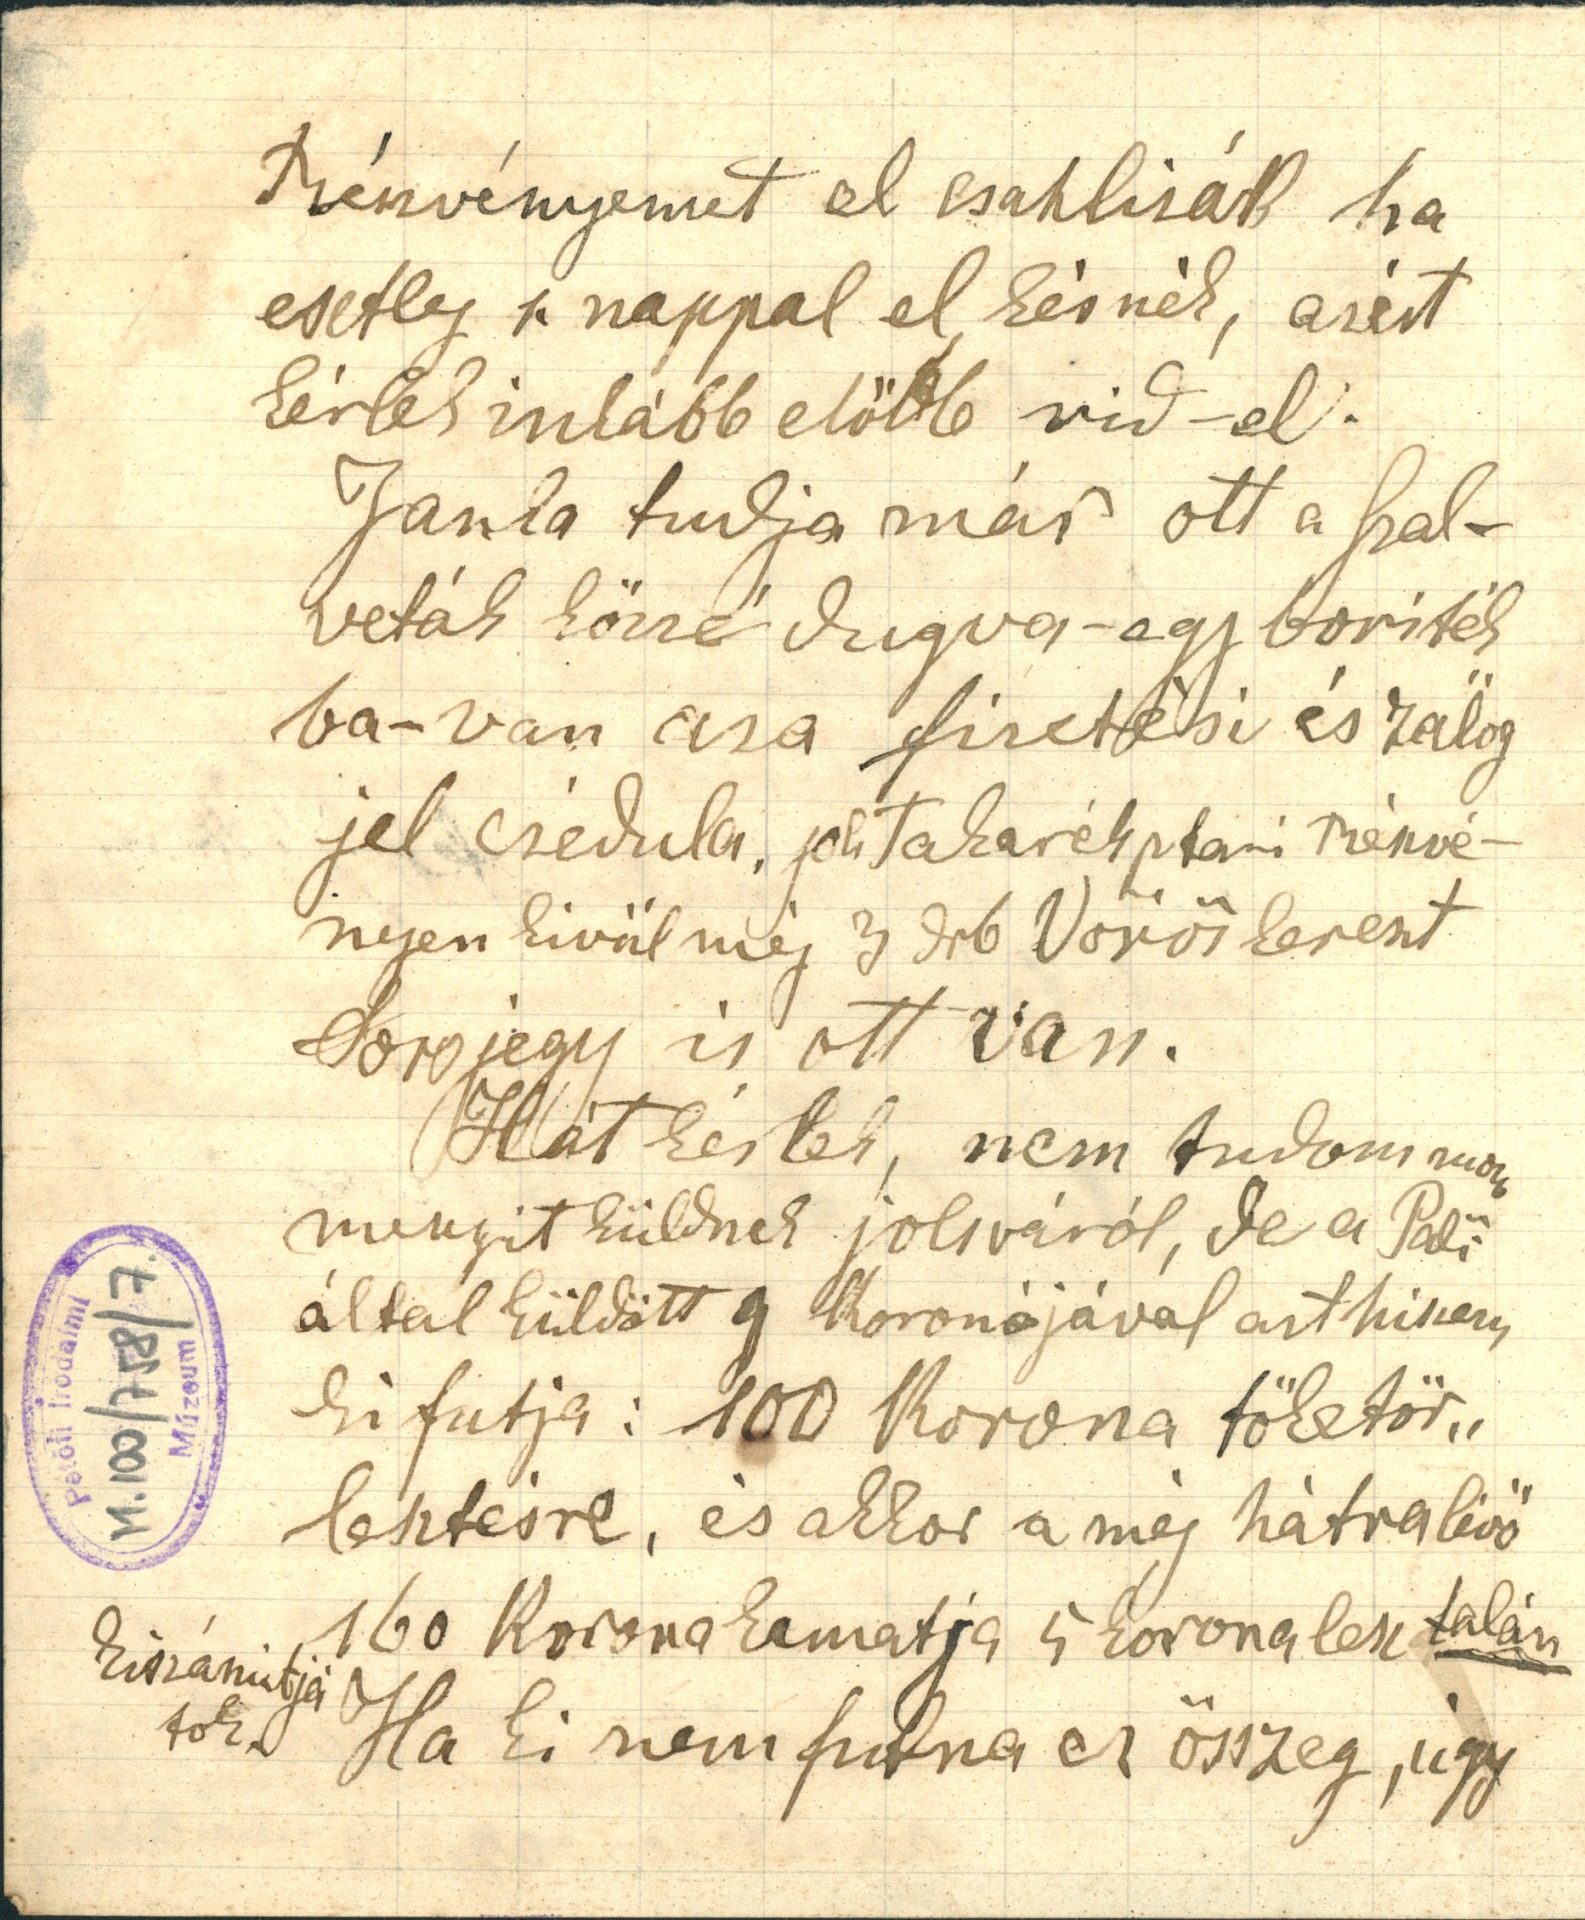 Részvényemet el csahlizák ha
esetleg 1. nappal el késnék, azért
kérlek inkább előbb vidd-el.
Janka tudja már ott a szal-
veták közzé dugva-egy boriték
ba-van aza fizetési és zálog
jel czédula, Takarékptári részvé-
nyen kivül még 3 drb Vörös kereszt
sorsjegy is ott van.
Hát kérlek, nem tudom
mennyit küldnek jolsváról, de a Pali
által küldött 9 Koronájával azt hiszem
ki futja: 100 Korona tőketör„
lesztésre, és akkor a még hátralévő
160 Korona kamatja 5 korona lesz talán
kiszámitják
tok.
Ha ki nem futna ez összeg, úgy
Petőfi Irodalmi
M.100/758/7.
Múzeum